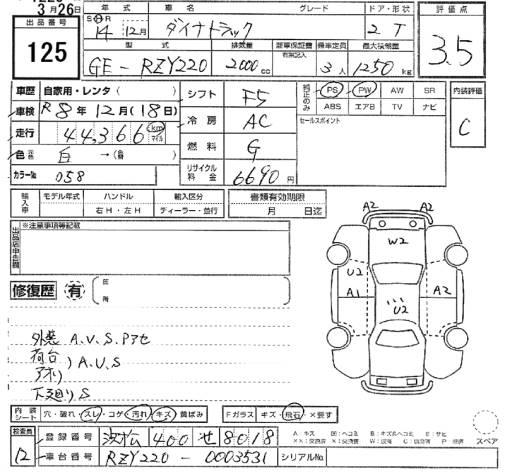 3月26日
出品番号
125
年式 車名 グレード ドア・形状
S H R 14年12月 ダイナトラック 2 T
型式 排気量 新車保証書 乗車定員 最大積載量
有無記入
GE-RZY220 2000cc 3人 1250kg
評価点
3.5
車歴 自家用・レンタ( )
車検 R8年12月(18日)
走行 44,366 km マイル
色 元色 白→(色 )
カラーNo 058
シフト F5
冷房 AC
燃料 G
リサイクル料金 6690円
純正のみ
PS PW AW SR
ABS エアB TV ナビ
セールスポイント
内装評価
C
輸入車 モデル年式 ハンドル 輸入区分
右H・左H ディーラー・並行
書類有効期限
月 日迄
※注意事項等記載
修復歴 有 箇所
外装 A.V.S.Pアセ
荷台
アオリ )A.U.S
下廻りS
A2 A2
W2
U2
A1
U2
A2
内装シート 穴・破れ・スレ・コゲ・汚れ・キズ・黄ばみ
Fガラス キズ・飛石・×要す
A キズ U ヘコミ B キズ&ヘコミ E サビ
スペア
検査員
12
登録番号 浜松 400 せ 8018
車台番号 RZY220-0003531
シリアルNo.